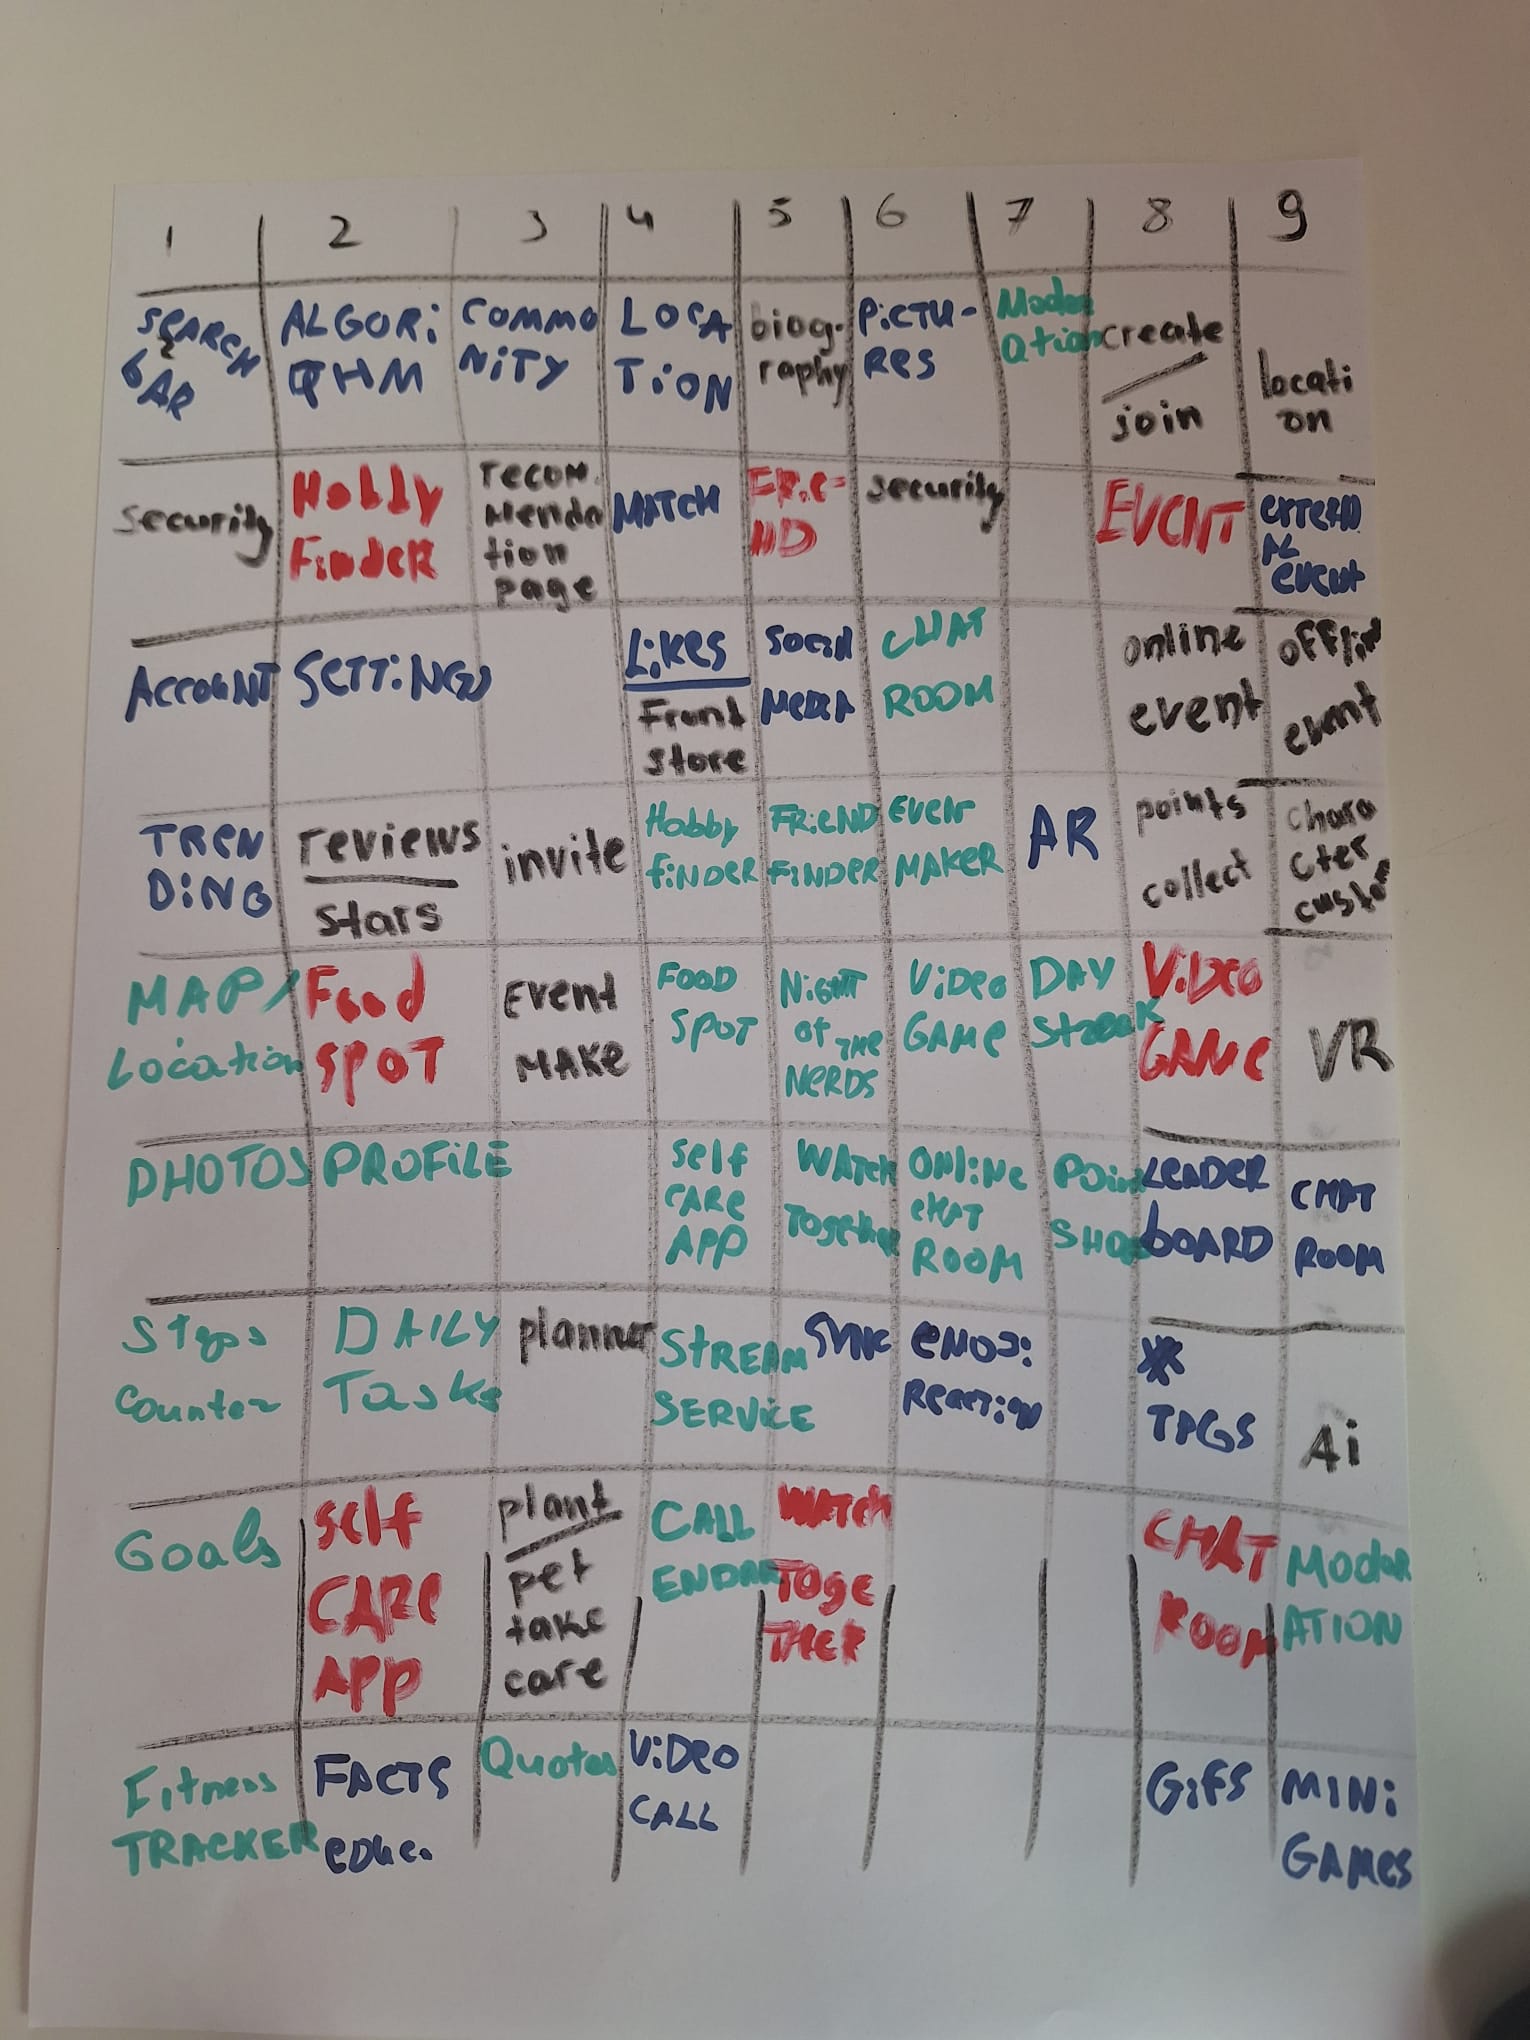 1 2 3 4 5 6 7 8 9
SEARCH
BAR
ALGORi
QHM
COMMO
NiTY
LOCA
TiON
biog-
raphy
PiCTU-
RES
Moder
ation
create
join
locati
on
security
Hobby
FinDER
recom.
Menda
tion
page
MATCH
FRiE-
ND
security
EVENT
EXTERN
AL
EVENT
ACCOUNT SETTiNGS
Likes
Front
store
SOCiAl
MEDiA
CHAT
ROOM
online
event
OFFline
event
TREN
DiNG
reviews
stars
invite
Hobby
FiNDER
FRiEND
FiNDER
EVENT
MAKER
AR
points
collect
chara
cter
custom
MAP/
Location
Food
SPOT
Event
MAKE
FOOD
SPOT
NiGHT
OF THE
NERDS
ViDEO
GAME
DAY
Streak
ViDEO
GAME
VR
PHOTOS PROFiLE
Self
CARE
APP
WATCH
Together
ONLiNE
CHAT
ROOM
Point
SHOP
LEADER
bOARD
CHAT
ROOM
Steps
Counter
DAiLY
Tasks
planner
STREAM
SERViCE
SYNC
EMOJi
REACTiON
TAGS
Ai
Goals
Self
CARE
APP
plant
pet
take
care
CALL
ENDAR
WATCH
TOGE
THER
CHAT
ROOM
MODER
ATiON
Fitness
TRACKER
FACTS
EDUC.
Quotes
ViDEO
CALL
GiFS
MiNi
GAMES